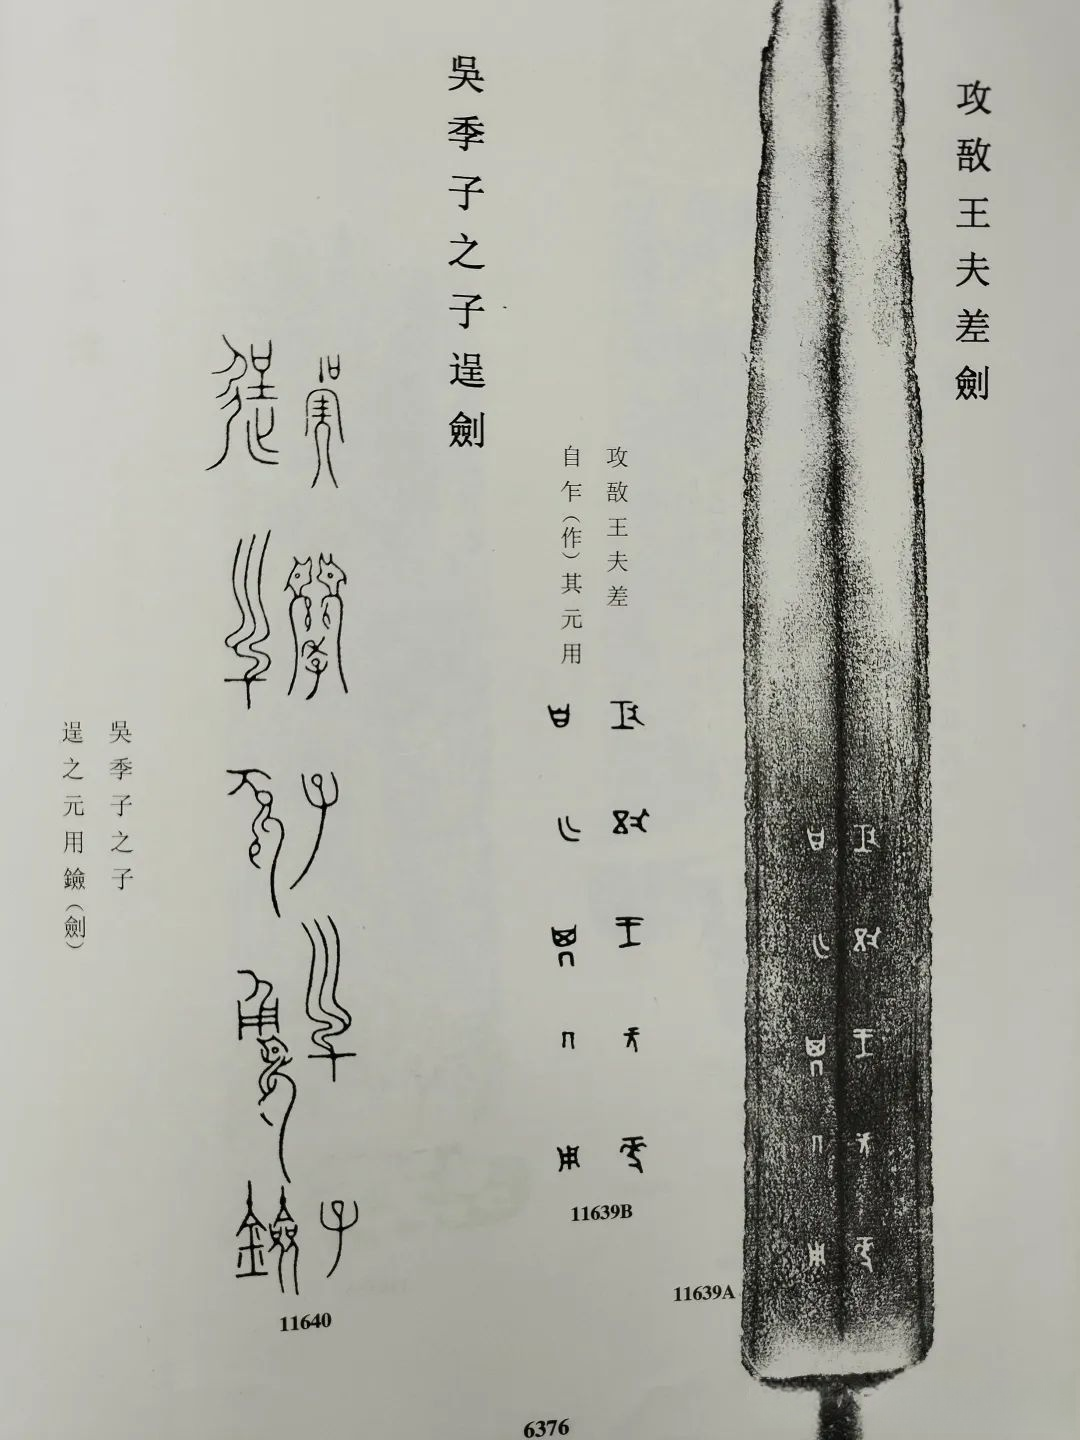 攻敔王夫差劍
攻敔王夫差
自乍（作）其元用
11639A
11639B
吳季子之子逞劍
吳季子之子
逞之元用鐱（劍）
11640
6376